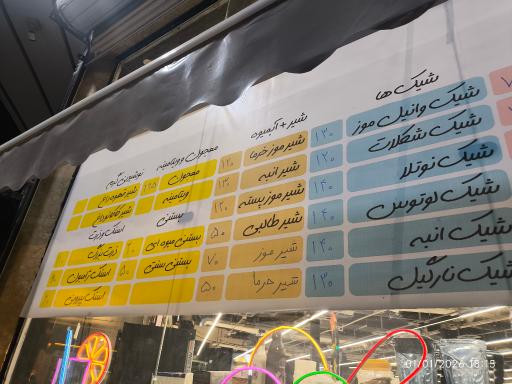 شیک ها
شیک وانیل موز ۱۳۰
شیک شکلات ۱۲۰
شیک نوتلا ۱۴۰
شیک لوتوس ۱۴۰
شیک انبه ۱۴۰
شیک نارگیل ۱۳۰
شیر + آبمیوه
شیر موز خرما ۱۲۰
شیر انبه ۱۳۰
شیر موز پسته ۱۲۰
شیر طالبی ۵۰
شیر موز ۷۰
شیر خرما ۵۰
معجون و ویتامینه
معجون
ویتامینه
بستنی
بستنی میوه ای
بستنی سنتی ۵۰
نوشیدنی گرم
اسنک و ذرت
ذرت بزرگ
01/01/2026 18:15